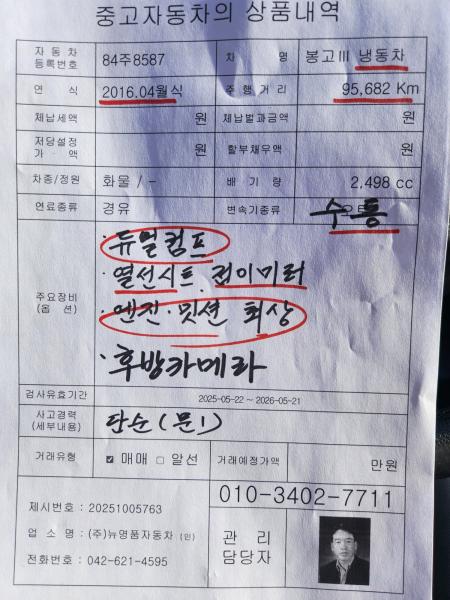 중고자동차의 상품내역
자동차등록번호 84주8587 차 명 봉고III 냉동차
연 식 2016.04월식 주행거리 95,682 Km
체납세액 원 체납벌과금액 원
저당설정가 액 원 할부채무액 원
차종/정원 화물 / - 배 기 량 2,498 cc
연료종류 경유 변속기종류 수동
주요장비(옵 션)
· 듀얼컴프
· 열선시트 전이미러
· 엔진·밋션 최상
· 후방카메라
검사유효기간 2025-05-22 ~ 2026-05-21
사고경력(세부내용) 단순(문1)
거래유형 ☑ 매매 □ 알선 거래예정가액 만원
010-3402-7711
제시번호 : 20251005763
업 소 명 : (주)뉴명품자동차 (인)
전화번호 : 042-621-4595
관 리
담당자